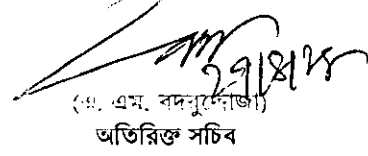 ২৭|৪|২৮
এম. বদরুদ্দোজা)
অতিরিক্ত সচিব